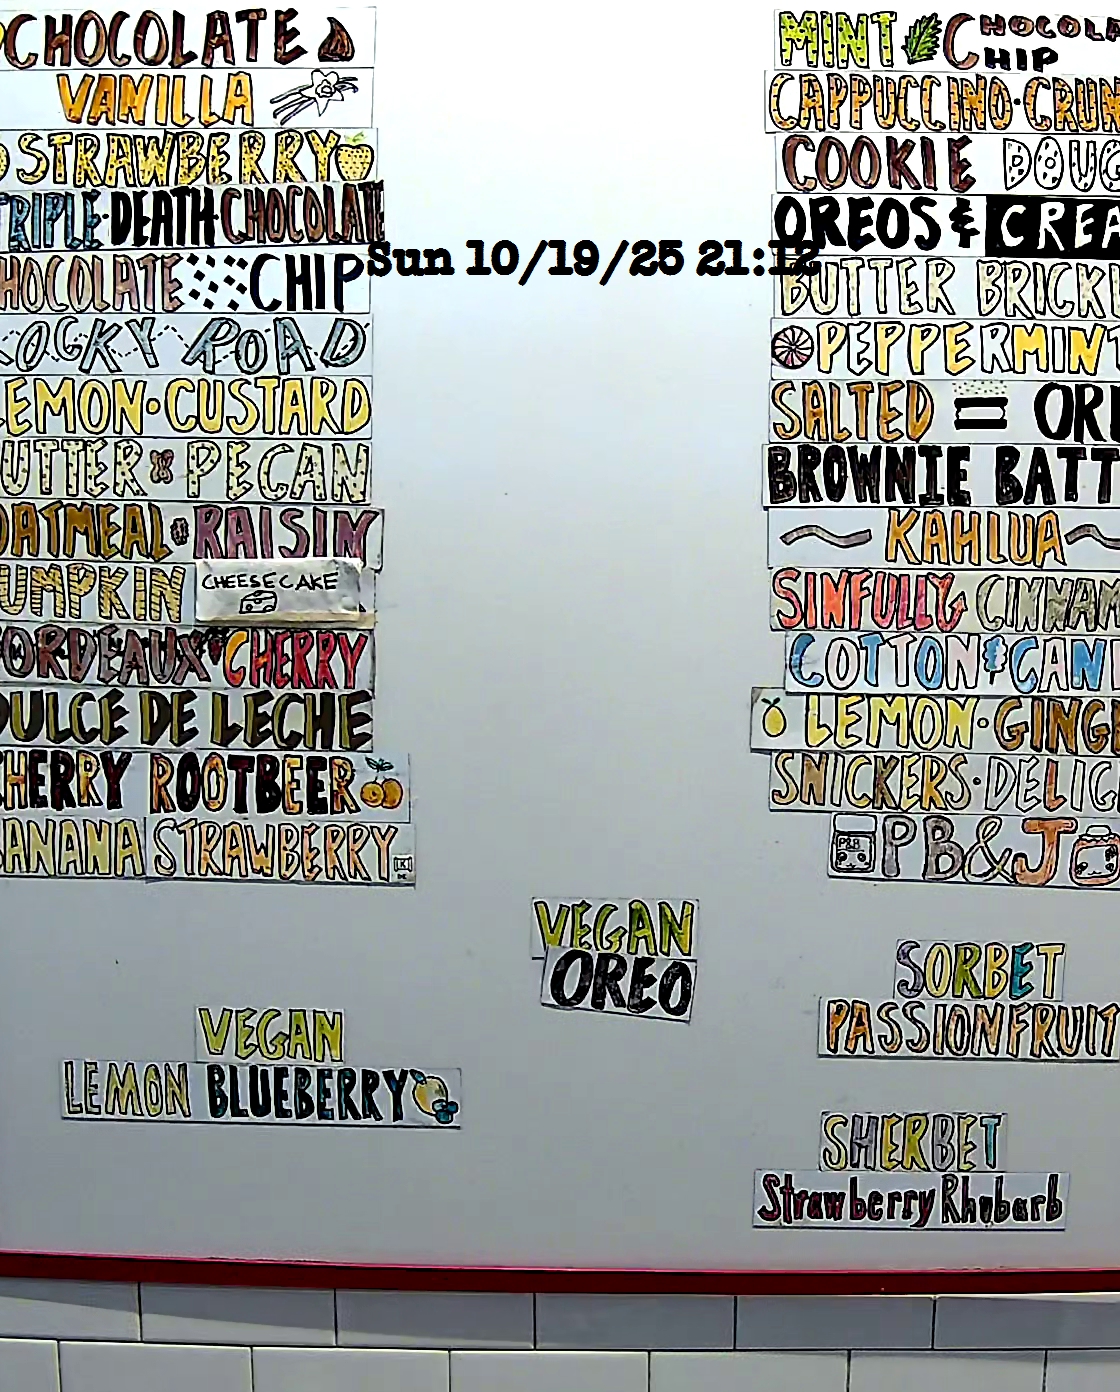 CHOCOLATE
VANILLA
STRAWBERRY
TRIPLE DEATH CHOCOLATE
HOCOLATE CHIP
OCKY ROAD
LEMON · CUSTARD
UTTER PECAN
OATMEAL RAISIN
UMPKIN CHEESECAKE
ORDEAUX CHERRY
DULCE DE LECHE
HERRY ROOTBEER
ANANA STRAWBERRY
VEGAN
LEMON BLUEBERRY
Sun 10/19/25 21:12
VEGAN
OREO
MINT CHOCOLA
CHIP
CAPPUCCINO · CRUN
COOKIE DOUG
OREOS & CREA
BUTTER BRICK
PEPPERMINT
SALTED ORE
BROWNIE BATT
KAHLUA
SINFULLY CINNAM
COTTON CAN
LEMON · GINGE
SNICKERS · DELIG
P&B PB&J
SORBET
PASSIONFRUIT
SHERBET
Strawberry Rhubarb